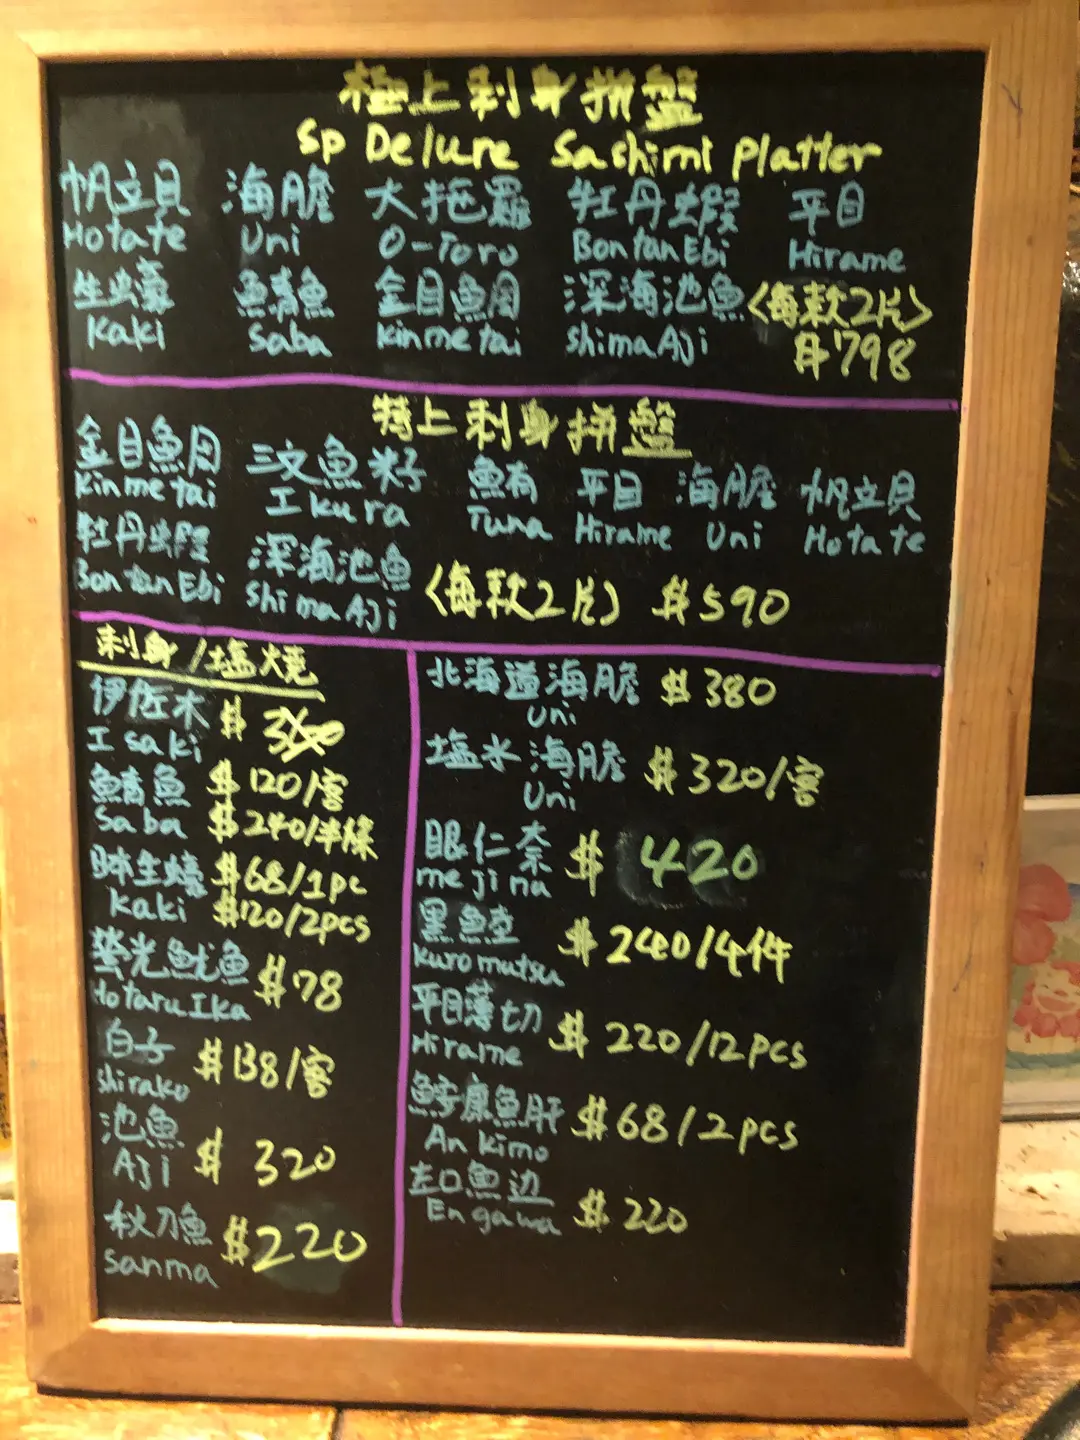 極上刺身拼盤
Sp Delure Sashimi Platter
帆立貝 海膽 大拖羅 牡丹蝦 平目
Hotate Uni O-Toro BontanEbi Hirame
生蠔 鯖魚 金目鯛 深海池魚 〈每款2片〉
Kaki Saba Kinmetai shimaAji $798
特上刺身拼盤
金目鯛 三文魚籽 鮪 平目 海膽 帆立貝
Kinmetai Ikura Tuna Hirame Uni Hotate
牡丹蝦 深海池魚 〈每款2片〉 $590
BontanEbi ShimaAji
刺身/塩燒
伊佐木 $
Isaki
鯖魚 $120/客
Saba $240/半條
生蠔 $68/1pc
Kaki $120/2pcs
螢光魷魚 $78
HotaruIka
白子 $138/客
shirako
池魚 $320
Aji
秋刀魚 $220
Sanma
北海道海膽 $380
Uni
塩水海膽 $320/客
Uni
眼仁奈 $420
mejina
黑鯥 $240/4件
Kuromutsu
平目薄切 $220/12pcs
Hirame
鮟康魚肝 $68/2pcs
An Kimo
左口魚边 $220
Engawa